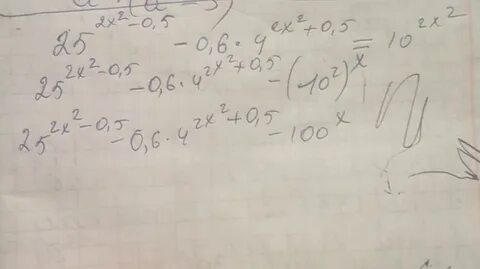 25^{2x²-0,5} - 0,6 · 4^{2x²+0,5} = 10^{2x²}
25^{2x²-0,5} - 0,6 · 4^{2x²+0,5} - (10²)^x
25^{2x²-0,5} - 0,6 · 4^{2x²+0,5} - 100^x